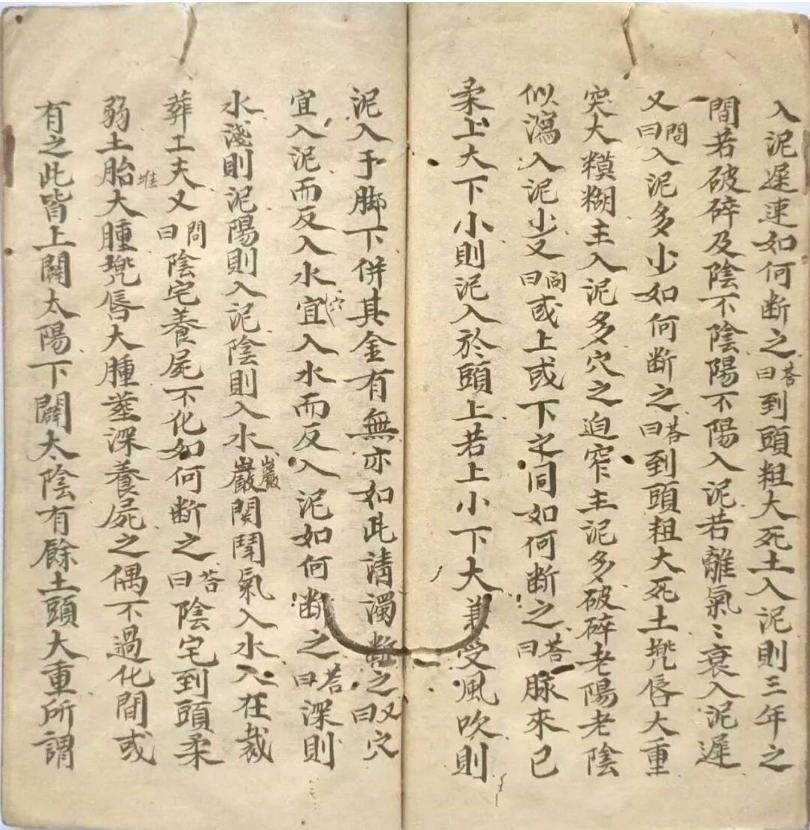 入泥遲速如何断之答曰到頭粗大死土入泥則三年之
間若破碎及陰不陰陽不陽入泥若離氣〻衰入泥遲
又問曰入泥多少如何断之答曰到頭粗大死土㙜唇大重
突大糢糊主入泥多穴之迫窄主泥多破碎老陽老陰
似瀉入泥少又問曰或上或下之同如何断之答曰脉來已
柔上大下小則泥入於頭上若上小下大兼受風吹則
泥入于脚下併其金有無亦如此清濁断之又曰穴
宜入泥而反入水宜穴入水而反入泥如何断之答曰深則
水淺則泥陽則入泥陰則入水巖巖閗鬧氣入水入在裁
葬工夫又問曰陰宅養屍不化如何断之答曰陰宅到頭柔
弱土胎大腫堆㙜唇大腫塟深養屍之偶不過化間或
有之此皆上闢太陽下闢太陰有餘土頭大重所謂